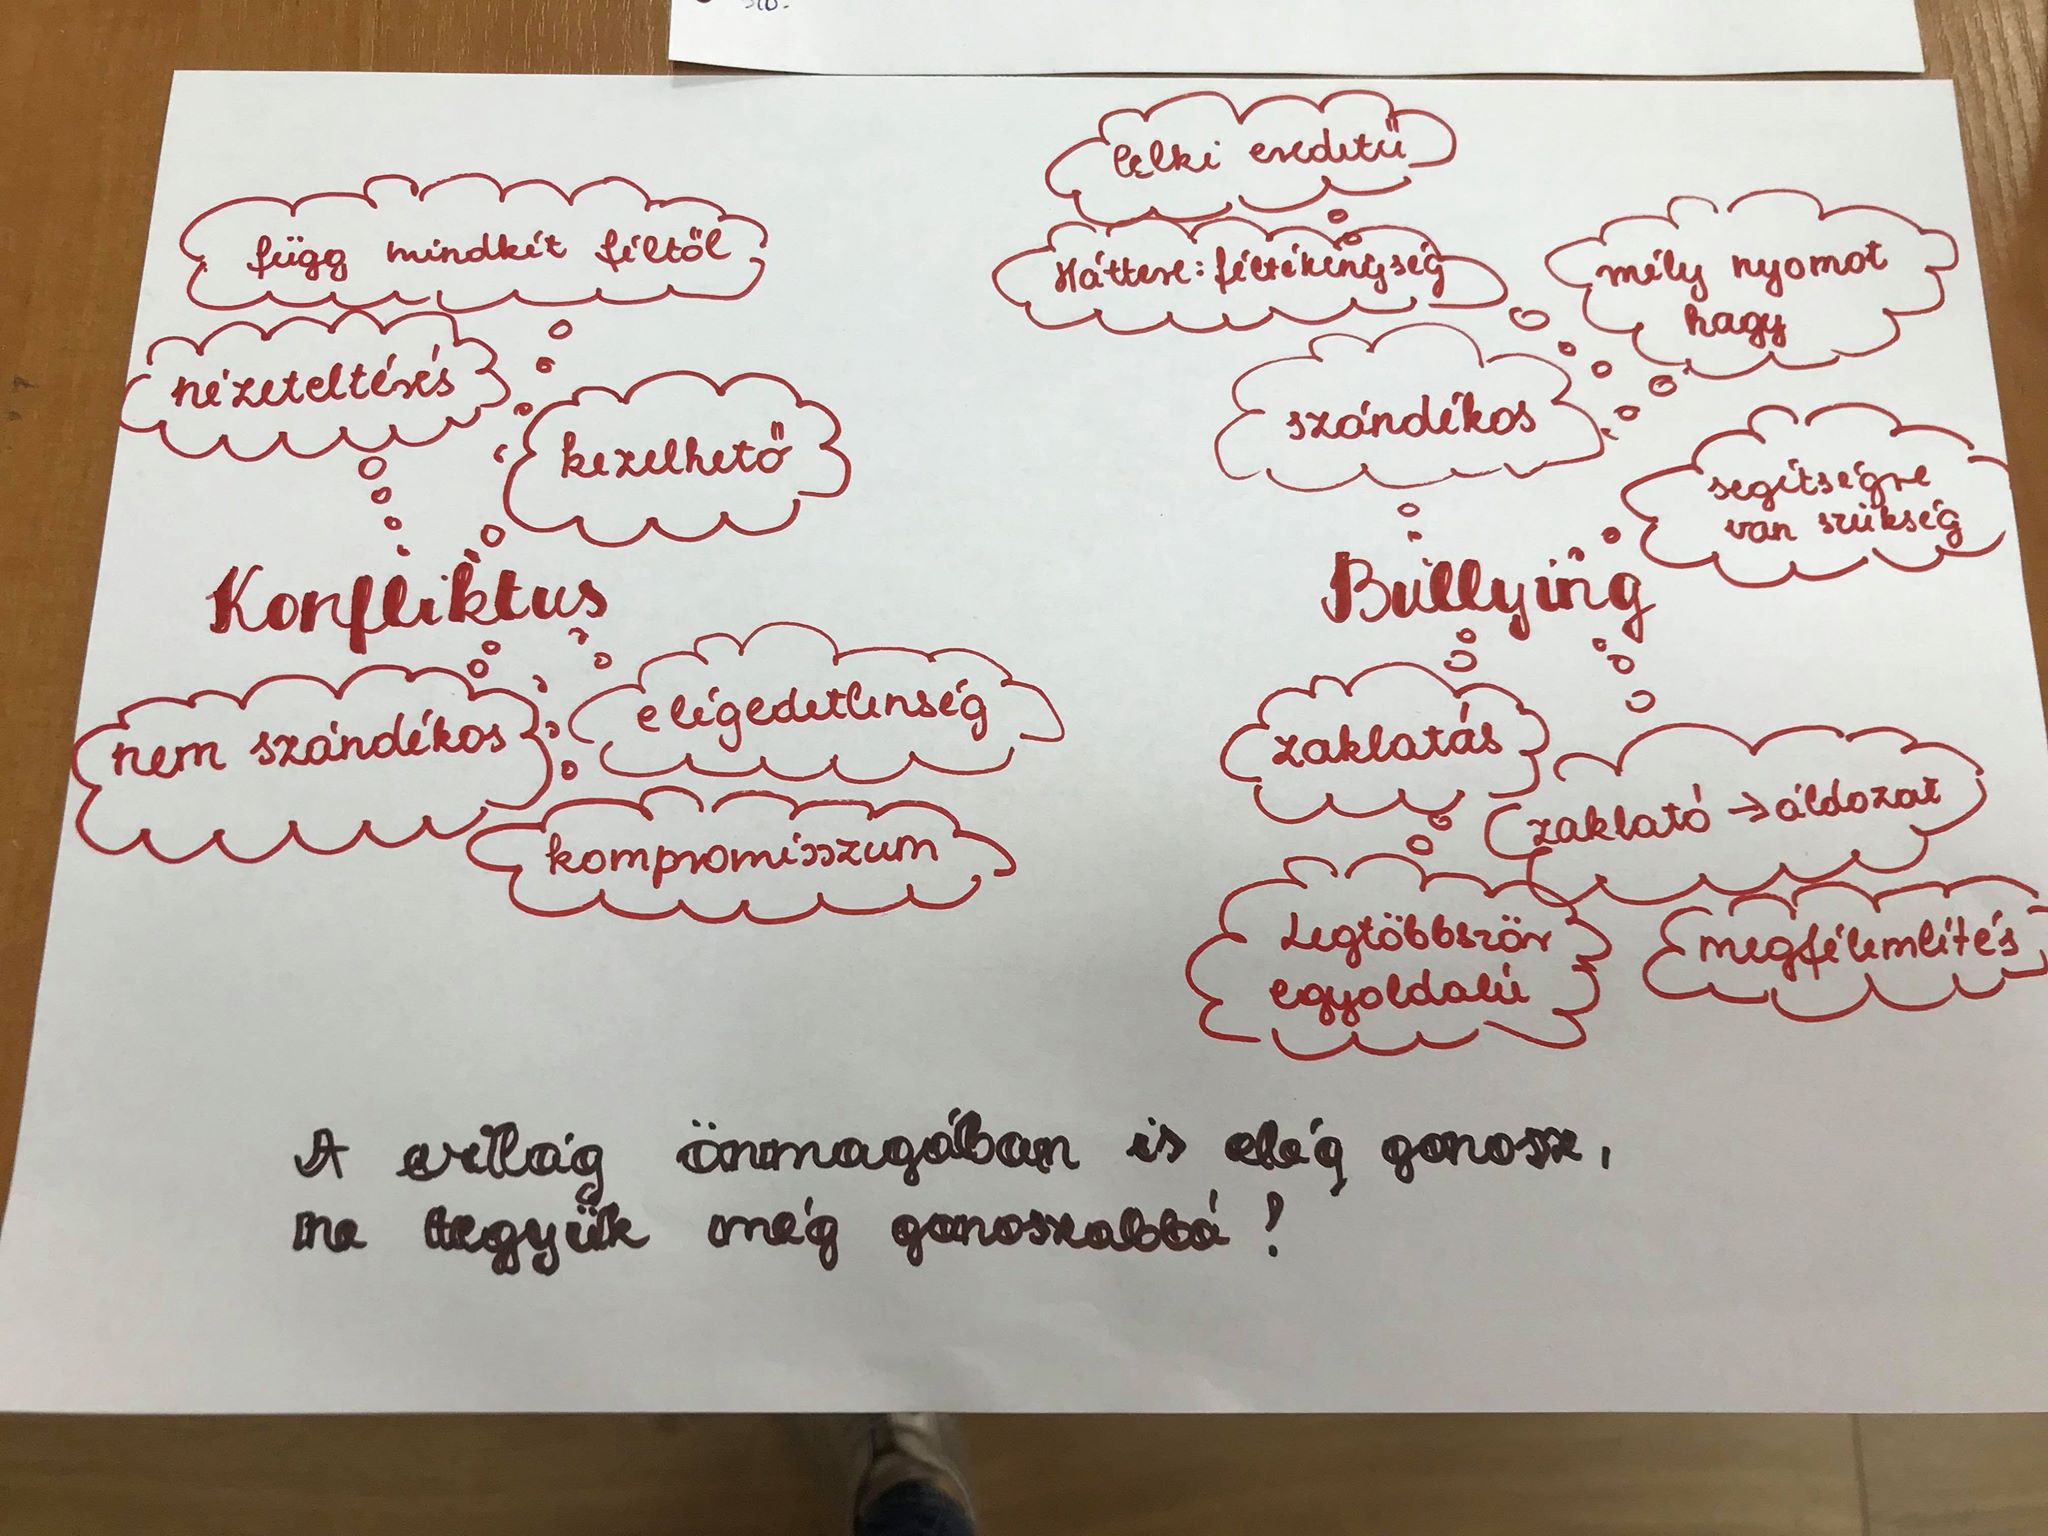 stb.
függ mindkét féltől
nézeteltérés
kezelhető
Konfliktus
nem szándékos
elégedetlenség
kompromisszum
lelki eredetű
Háttere: féltékenység
mély nyomot
hagy
szándékos
segítségre
van szükség
Bullying
zaklatás
zaklató → áldozat
Legtöbbször
egyoldalú
megfélemlítés
A világ önmagában is elég gonosz,
ne tegyük még gonoszabbá!